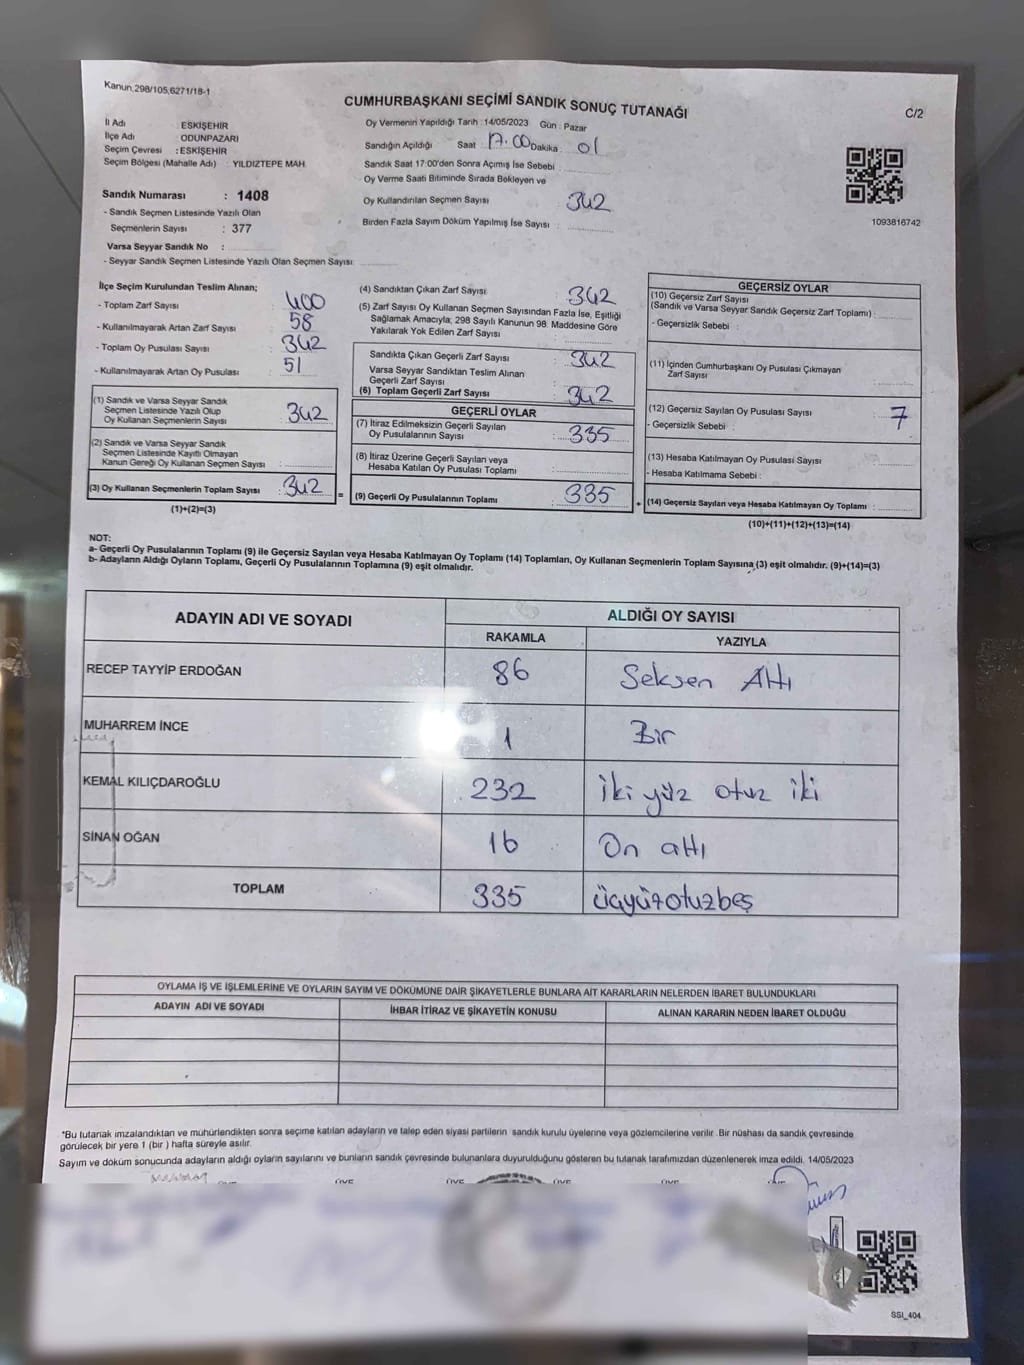 Kanun.298/105,6271/18-1
CUMHURBAŞKANI SEÇİMİ SANDIK SONUÇ TUTANAĞI
C/2
İl Adı : ESKİŞEHİR
İlçe Adı : ODUNPAZARI
Seçim Çevresi : ESKİŞEHİR
Seçim Bölgesi (Mahalle Adı) : YILDIZTEPE MAH.
Sandık Numarası : 1408
- Sandık Seçmen Listesinde Yazılı Olan
Seçmenlerin Sayısı : 377
Varsa Seyyar Sandık No :
- Seyyar Sandık Seçmen Listesinde Yazılı Olan Seçmen Sayısı
Oy Vermenin Yapıldığı Tarih :14/05/2023 Gün : Pazar
Sandığın Açıldığı Saat 17.00 Dakika 01
Sandık Saat 17:00'den Sonra Açımış İse Sebebi
Oy Verme Saati Bitiminde Sırada Bekleyen ve
Oy Kullandırılan Seçmen Sayısı : 342
Birden Fazla Sayım Döküm Yapılmış İse Sayısı :
1093816742
İlçe Seçim Kurulundan Teslim Alınan;
- Toplam Zarf Sayısı : 400
- Kullanılmayarak Artan Zarf Sayısı : 58
- Toplam Oy Pusulası Sayısı : 342
- Kullanılmayarak Artan Oy Pusulası : 51
(1) Sandık ve Varsa Seyyar Sandık
Seçmen Listesinde Yazılı Olup
Oy Kullanan Seçmenlerin Sayısı : 342
(2) Sandık ve Varsa Seyyar Sandık
Seçmen Listesinde Kayıtlı Olmayan
Kanun Gereği Oy Kullanan Seçmen Sayısı :
(3) Oy Kullanan Seçmenlerin Toplam Sayısı : 342
(1)+(2)=(3)
=
(4) Sandıktan Çıkan Zarf Sayısı : 342
(5) Zarf Sayısı Oy Kullanan Seçmen Sayısından Fazla İse, Eşitliği
Sağlamak Amacıyla, 298 Sayılı Kanunun 98. Maddesine Göre
Yakılarak Yok Edilen Zarf Sayısı :
Sandıkta Çıkan Geçerli Zarf Sayısı : 342
Varsa Seyyar Sandıktan Teslim Alınan
Geçerli Zarf Sayısı :
(6) Toplam Geçerli Zarf Sayısı : 342
GEÇERLİ OYLAR
(7) İtiraz Edilmeksizin Geçerli Sayılan
Oy Pusulalarının Sayısı : 335
(8) İtiraz Üzerine Geçerli Sayılan veya
Hesaba Katılan Oy Pusulası Toplamı :
(9) Geçerli Oy Pusulalarının Toplamı : 335
+
GEÇERSİZ OYLAR
(10) Geçersiz Zarf Sayısı
(Sandık ve Varsa Seyyar Sandık Geçersiz Zarf Toplamı) :
- Geçersizlik Sebebi :
(11) İçinden Cumhurbaşkanı Oy Pusulası Çıkmayan
Zarf Sayısı :
(12) Geçersiz Sayılan Oy Pusulası Sayısı : 7
- Geçersizlik Sebebi :
(13) Hesaba Katılmayan Oy Pusulası Sayısı :
- Hesaba Katılmama Sebebi :
(14) Geçersiz Sayılan veya Hesaba Katılmayan Oy Toplamı :
(10)+(11)+(12)+(13)=(14)
NOT:
a- Geçerli Oy Pusulalarının Toplamı (9) ile Geçersiz Sayılan veya Hesaba Katılmayan Oy Toplamı (14) Toplamları, Oy Kullanan Seçmenlerin Toplam Sayısına (3) eşit olmalıdır. (9)+(14)=(3)
b- Adayların Aldığı Oyların Toplamı, Geçerli Oy Pusulalarının Toplamına (9) eşit olmalıdır.
ADAYIN ADI VE SOYADI
ALDIĞI OY SAYISI
RAKAMLA YAZIYLA
RECEP TAYYİP ERDOĞAN 86 Seksen Altı
MUHARREM İNCE 1 Bir
KEMAL KILIÇDAROĞLU 232 İki yüz otuz iki
SİNAN OĞAN 16 On altı
TOPLAM 335 üçyüzotuzbeş
OYLAMA İŞ VE İŞLEMLERİNE VE OYLARIN SAYIM VE DÖKÜMÜNE DAİR ŞİKAYETLERLE BUNLARA AİT KARARLARIN NELERDEN İBARET BULUNDUKLARI
ADAYIN ADI VE SOYADI İHBAR İTİRAZ VE ŞİKAYETİN KONUSU ALINAN KARARIN NEDEN İBARET OLDUĞU
*Bu tutanak imzalandıktan ve mühürlendikten sonra seçime katılan adayların ve talep eden siyasi partilerin sandık kurulu üyelerine veya gözlemcilerine verilir .Bir nüshası da sandık çevresinde
görülecek bir yere 1 (bir ) hafta süreyle asılır.
Sayım ve döküm sonucunda adayların aldığı oyların sayılarını ve bunların sandık çevresinde bulunanlara duyurulduğunu gösteren bu tutanak tarafımızdan düzenlenerek imza edildi. 14/05/2023
SSI_404